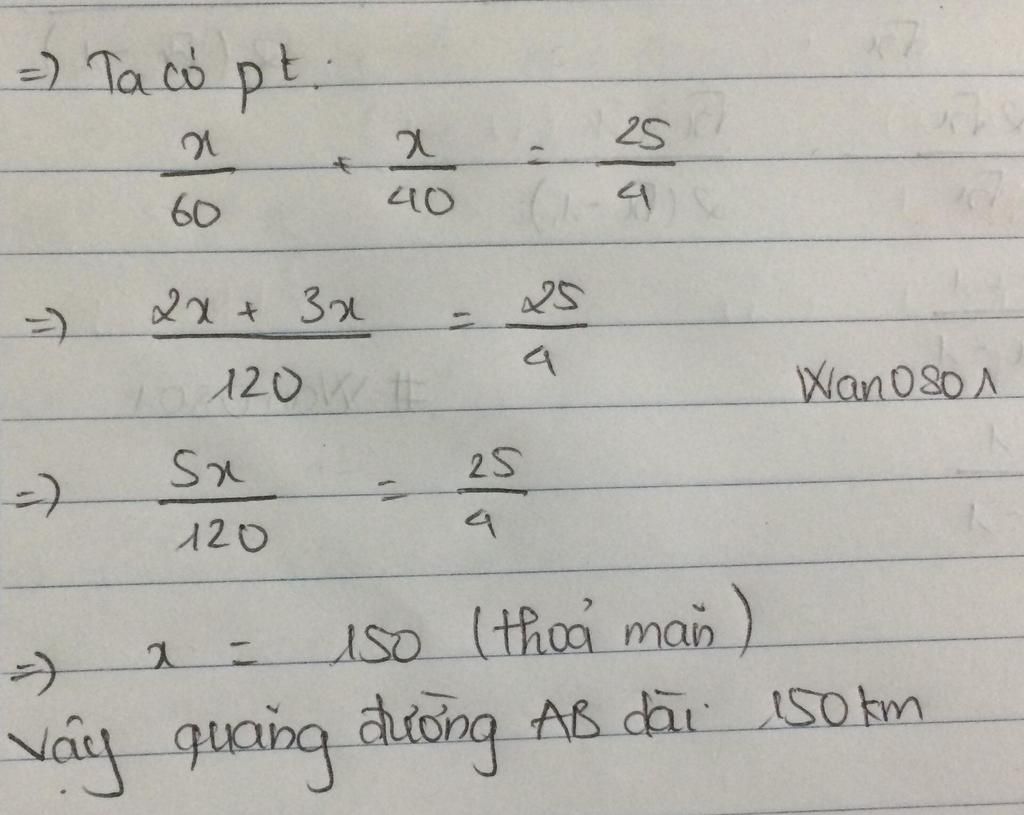 =) Ta có pt:
x/60 + x/40 = 25/4
=) 2x + 3x/120 = 25/4
Wan0801
=) 5x/120 = 25/4
=) x = 150 (thoả mãn)
Vậy quãng đường AB dài 150km